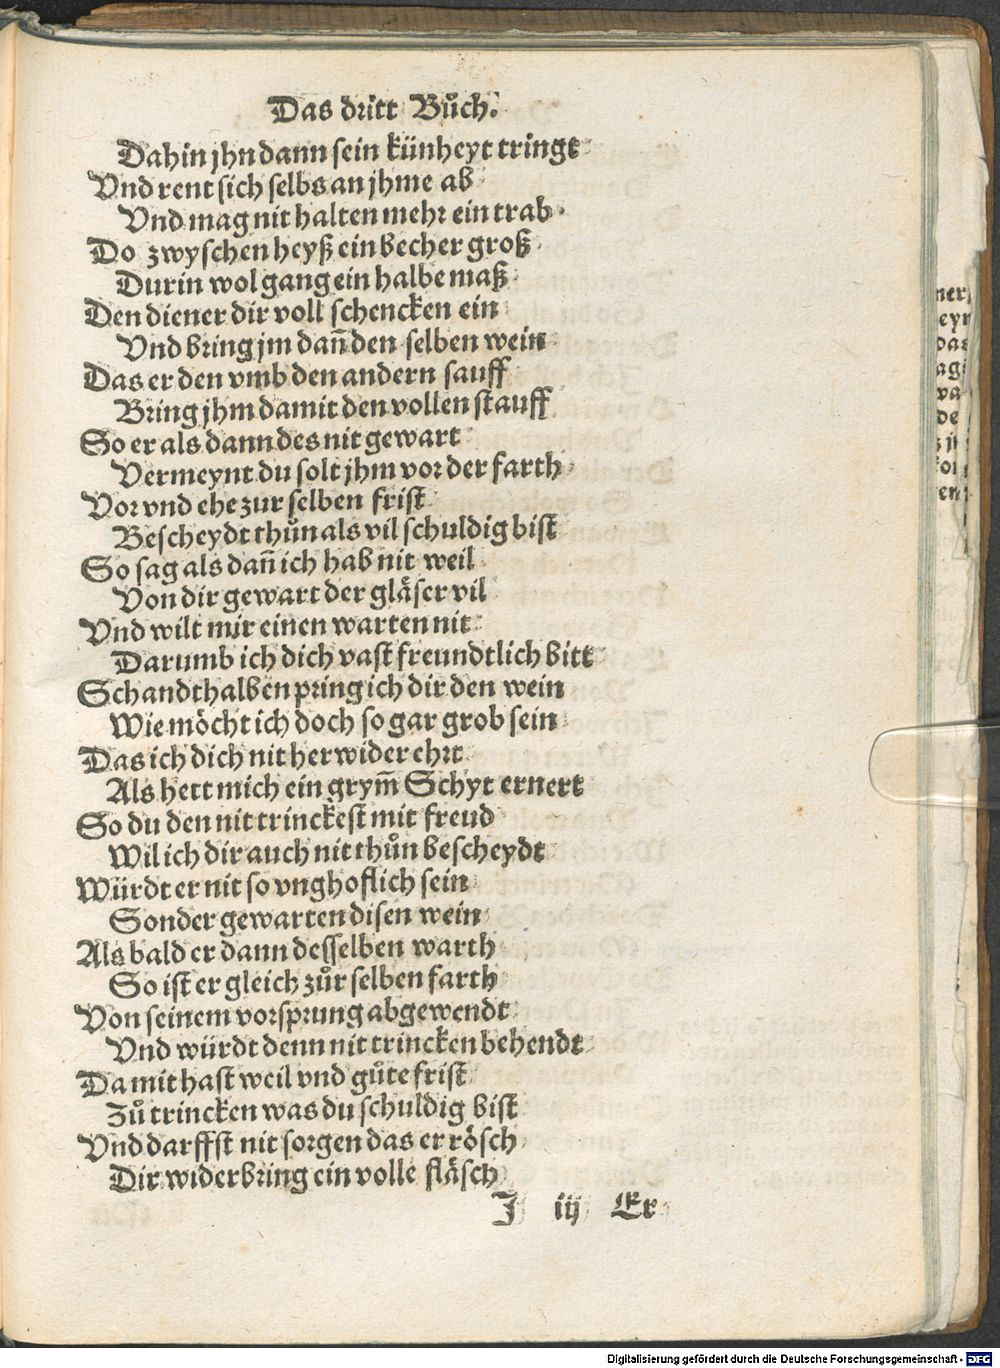 Das dritt Bůch.
Dahin jhn dann sein künheyt tringt
Vnd rent sich selbs an jhme ab
Vnd mag nit halten mehr ein trab
Do zwyschen heyß ein becher groß
Durin wol gang ein halbe maß
Den diener dir voll schencken ein
Vnd bring jm dañ den selben wein
Das er den vmb den andern sauff
Bring jhm damit den vollen stauff
So er als dann des nit gewart
Vermeynt du solt jhm vor der farth
Vor vnd ehe zur selben frist
Bescheydt thůn als vil schuldig bist
So sag als dañ ich hab nit weil
Von dir gewart der gläser vil
Vnd wilt mir einen warten nit
Darumb ich dich vast freundtlich bitt
Schandthalben pring ich dir den wein
Wie möcht ich doch so gar grob sein
Das ich dich nit herwider ehrt
Als hett mich ein grym̃ Schyt ernert
So du den nit trinckest mit freud
Wil ich dir auch nit thůn bescheydt
Würdt er nit so vnghoflich sein
Sonder gewarten disen wein
Als bald er dann desselben warth
So ist er gleich zůr selben farth
Von seinem vorsprung abgewendt
Vnd würdt denn nit trincken behendt
Damit hast weil vnd gůte frist
Zů trincken was du schuldig bist
Vnd darffst nit sorgen das er rösch
Dir widerbring ein volle fläsch
J iij Er
ner
eyn
das
agt
va
de
Digitalisierung gefördert durch die Deutsche Forschungsgemeinschaft - DFG